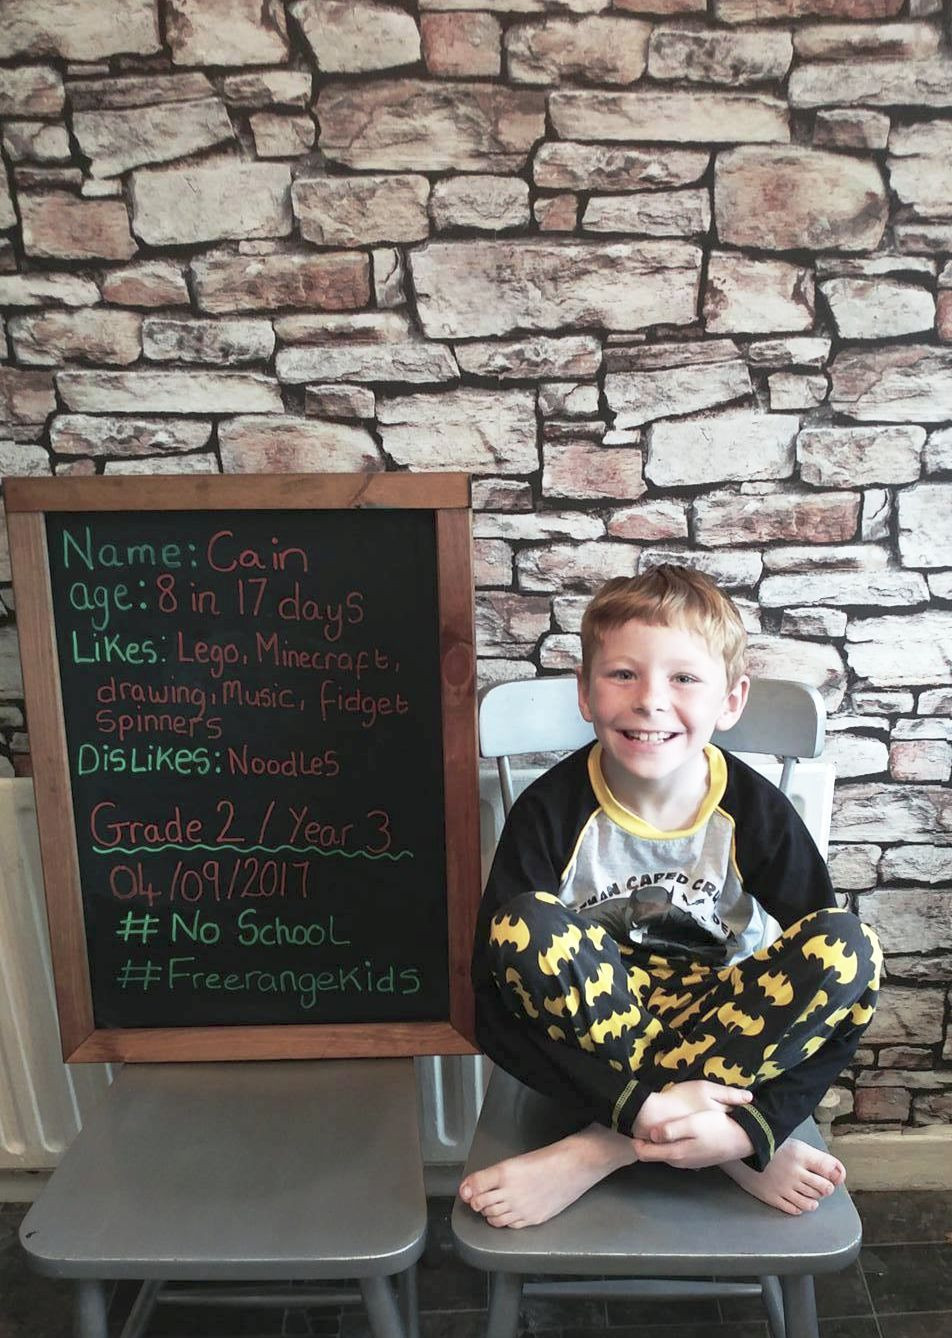 Name: Cain
age: 8 in 17 days
Likes: Lego, Minecraft,
drawing, Music, fidget
Spinners
DisLikes: NoodLes
Grade 2 / Year 3
04/09/2017
# No SchooL
#FreerangeKids
CAPED